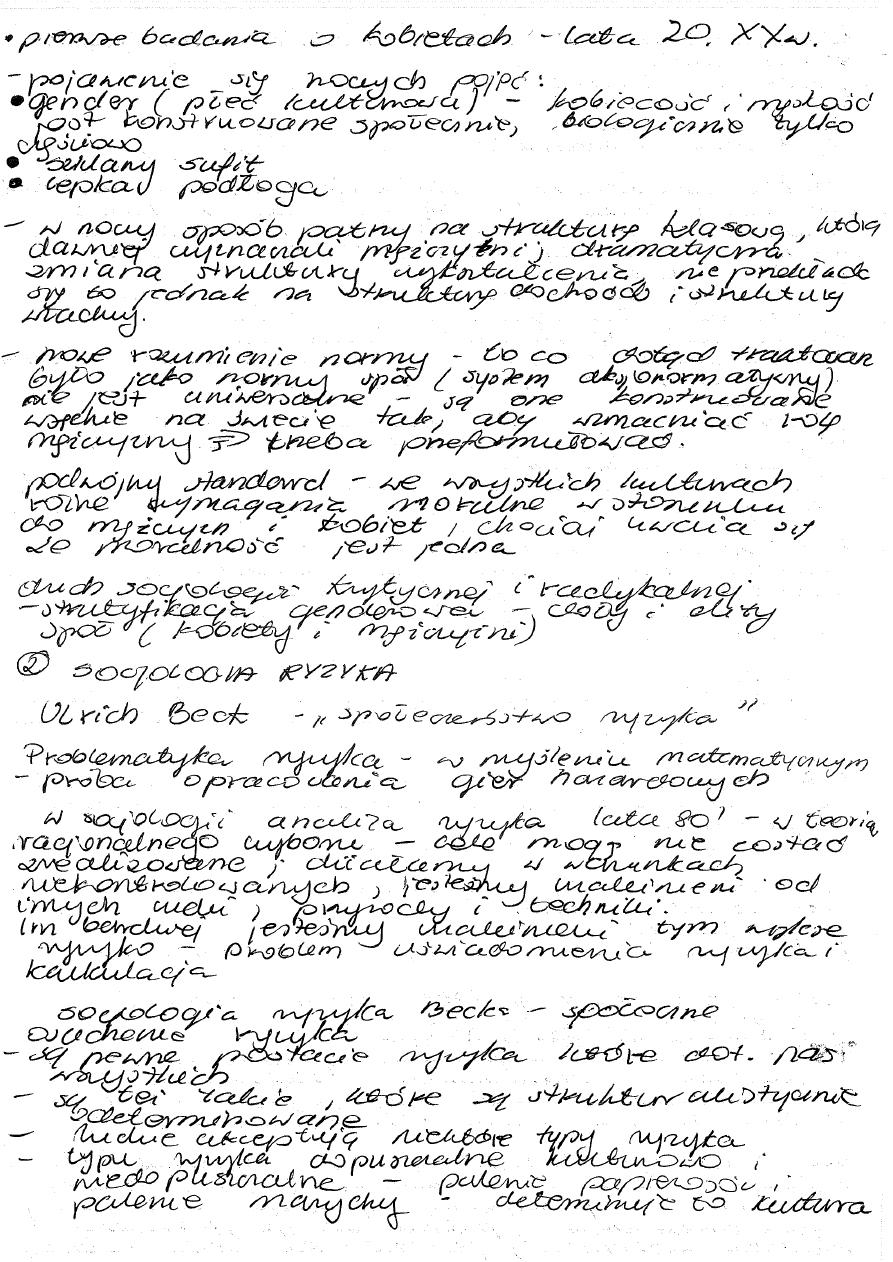 • pierwsze badania o kobietach - lata 20. XXw.
- pojawienie się nowych pojęć:
• gender (płeć kulturowa) - kobiecość i męskość
jest konstruowane społecznie, biologicznie tylko
częściowo
• szklany sufit
• lepka podłoga
- w nowy sposób patrzy na strukturę klasową, którą
dawniej wyznaczali mężczyźni; dramatyczna
zmiana struktury wykształcenia, nie przekłada
się to jednak na strukturę dochodów i struktury
władzy.
- nowe rozumienie normy - to co dotąd traktowan
było jako normy społ (system aksjonormatywny)
nie jest uniwersalne - są one konstruowane
wszędzie na świecie tak, aby wzmacniać rolę
mężczyzny => trzeba przeformułować.
podwójny standard - we wszystkich kulturach
różne wymagania moralne w stosunku
do mężczyzn i kobiet, chociaż uważa się
że moralność jest jedna
duch socjologii krytycznej i radykalnej
- stratyfikacja genderowa - doły i elity
społ (kobiety i mężczyźni)
② SOCJOLOGIA RYZYKA
Ulrich Beck - „społeczeństwo ryzyka”
Problematyka ryzyka - w myśleniu matematycznym
- próba opracowania gier hazardowych
w socjologii analiza ryzyka lata 80' - w teorią
racjonalnego wyboru - cele mogą nie zostać
zrealizowane; działamy w warunkach
niekontrolowanych, jesteśmy uzależnieni od
innych ludzi, przyrody i techniki.
Im bardziej jesteśmy uzależnieni tym większe
ryzyko - problem uświadomienia ryzyka i
kalkulacja
socjologia ryzyka Becka - społeczne
ryzyka
- są pewne postacie ryzyka które dot. nas
wszystkich
- są też takie, które są strukturalistycznie
zdeterminowane
- ludzie akceptują niektóre typy ryzyka
- typy ryzyka dopuszczalne kulturowo i
niedopuszczalne - palenie papierosów i
palenie marychy - determinuje to kultura